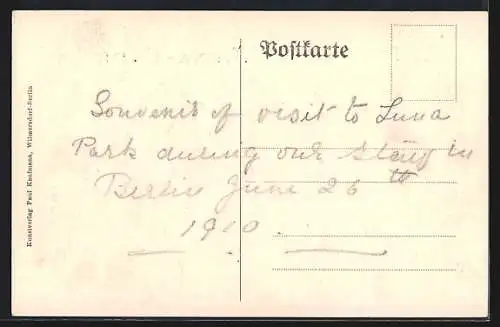 Postkarte
Souvenir of visit to Luna
Park during our stay in
Berlin June 26th
1910.
Kunstverlag Paul Kaufmann, Wilmersdorf-Berlin